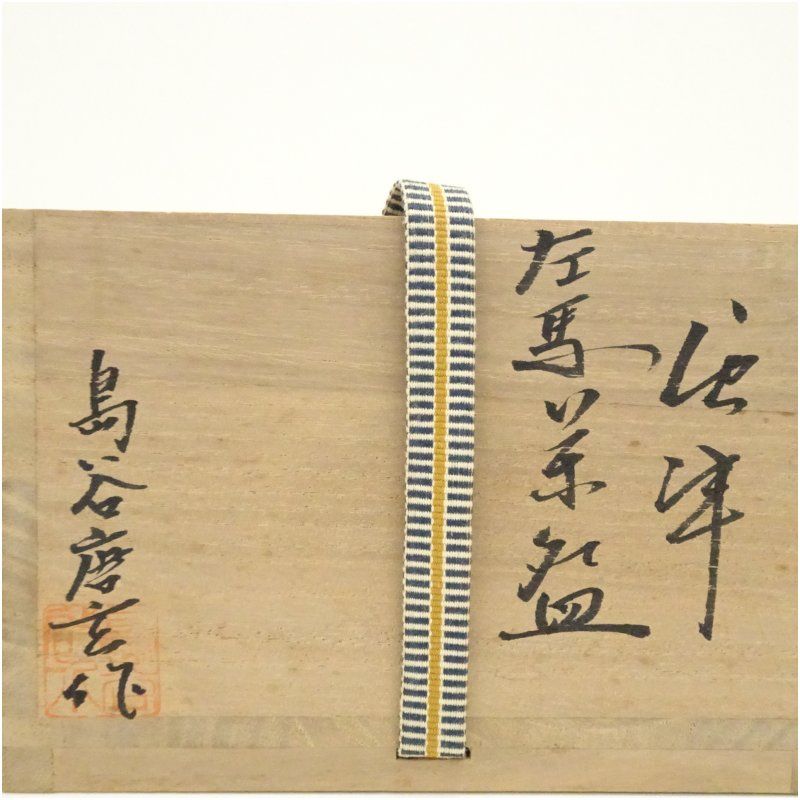 唐津
左馬茶盌
島谷磨玄作